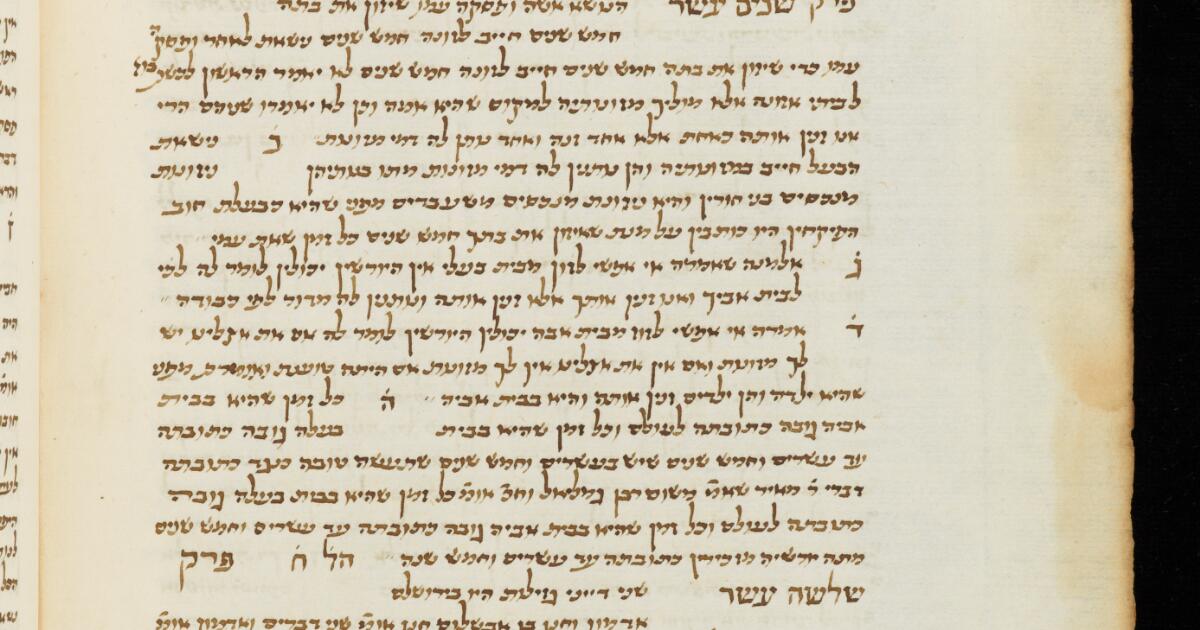 פרק שנים עשר הנושא אשה ופסקה עמו שיזון את בתה
חמש שנים חייב לזונה חמש שנים נישאת לאחר ופסק׳
עמו כדי שיזון את בתה חמש שנים חייב לזונה חמש שנים לא יאמר הראשון לכש
לביתי אזונה אלא מוליך מזונותיה למקום שהיא אמה וכן לא יאמרו שניהם הרי
אנו זנין אותה כאחת אלא אחד זנה ואחד נותן לה דמי מזונות ב נישאת
הבעל חייב במזונותיה והן נותנין לה דמי מזונות מיתו בנותיהן ניזונות
מנכסים בני חורין והיא ניזונת מנכסים משועבדים מפני שהיא כבעלת חוב
הפיקחין היו כותבין על מנת שאיזון את בתך חמש שנים כל זמן שאת עמי
ג אלמנה שאמרה אי אפשי לזוז מבית בעלי אין היורשין יכולין לומר לה לכי
לבית אביך ואנו זנין אותך אלא זנין אותה ונותנין לה מדור לפי כבודה
ד אמרה אי אפשי לזוז מבית אבה יכולין היורשין לומר לה אם את אצלינו יש
לך מזונות ואם אין את אצלינו אין לך מזונות אם היתה טוענת מפני
שהיא ילדה והן ילדים זנין אותה והיא בבית אביה ה כל זמן שהיא בבית
אביה גובה כתובתה לעולם וכל זמן שהיא בבית בעלה גובה כתובתה
עד עשרים וחמש שנים שיש בעשרים וחמש שנים שתעשה טובה כנגד כתובתה
דברי ר׳ מאיר שאמ׳ משום רבן גמליאל וחכ׳ אומ׳ כל זמן שהיא בבית בעלה גובה
כתובתה לעולם וכל זמן שהיא בבית אביה גובה כתובתה עד עשרים וחמש שנים
מתה יורשיה מזכירין כתובתה עד עשרים וחמש שנה הל׳ ה׳ פרק
שלשה עשר שני דייני גזילות היו בירושלם
אדמון וחנן בן אבשלום חנן אומ׳ שני דברים ואדמון אומ׳